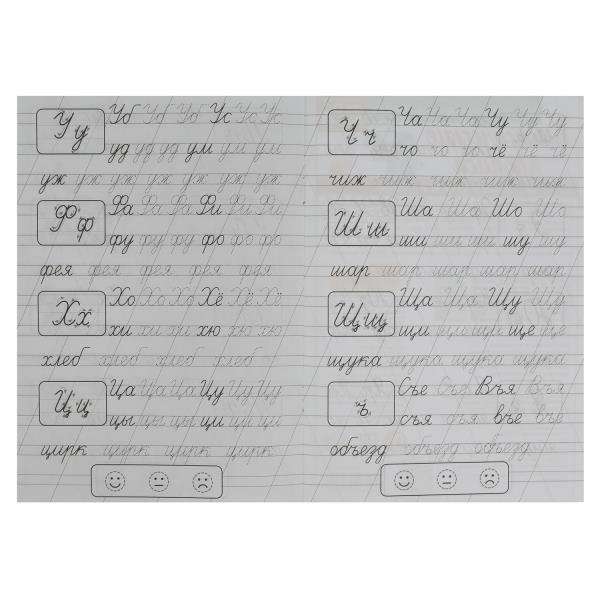 Уу Уб Уб Уб Ус Ус Ус
уд уд уд ум ум ум
уж уж уж уж уж уж уж
Фф Фа Фа Фа Фи Фи Фи
фу фу фу фо фо фо
фея фея фея фея фея
Хх Хо Хо Хо Хё Хё Хё
хи хи хи хю хю хю
хлеб хлеб хлеб хлеб
Цц Ца Ца Ца Цу Цу Цу
цы цы цы ци ци ци
цирк цирк цирк цирк
Чч Ча Ча Ча Чу Чу Чу
чо чо чо чё чё чё
чиж чиж чиж чиж чиж
Шш Ша Ша Шо Шо
ши ши ши шу шу
шар шар шар шар шар
Щщ Ща Ща Щу Щу
щи щи щи ще ще
щука щука щука щука
ъ Съе Съе Въя Въя
съя съя въе въе
объезд объезд объезд